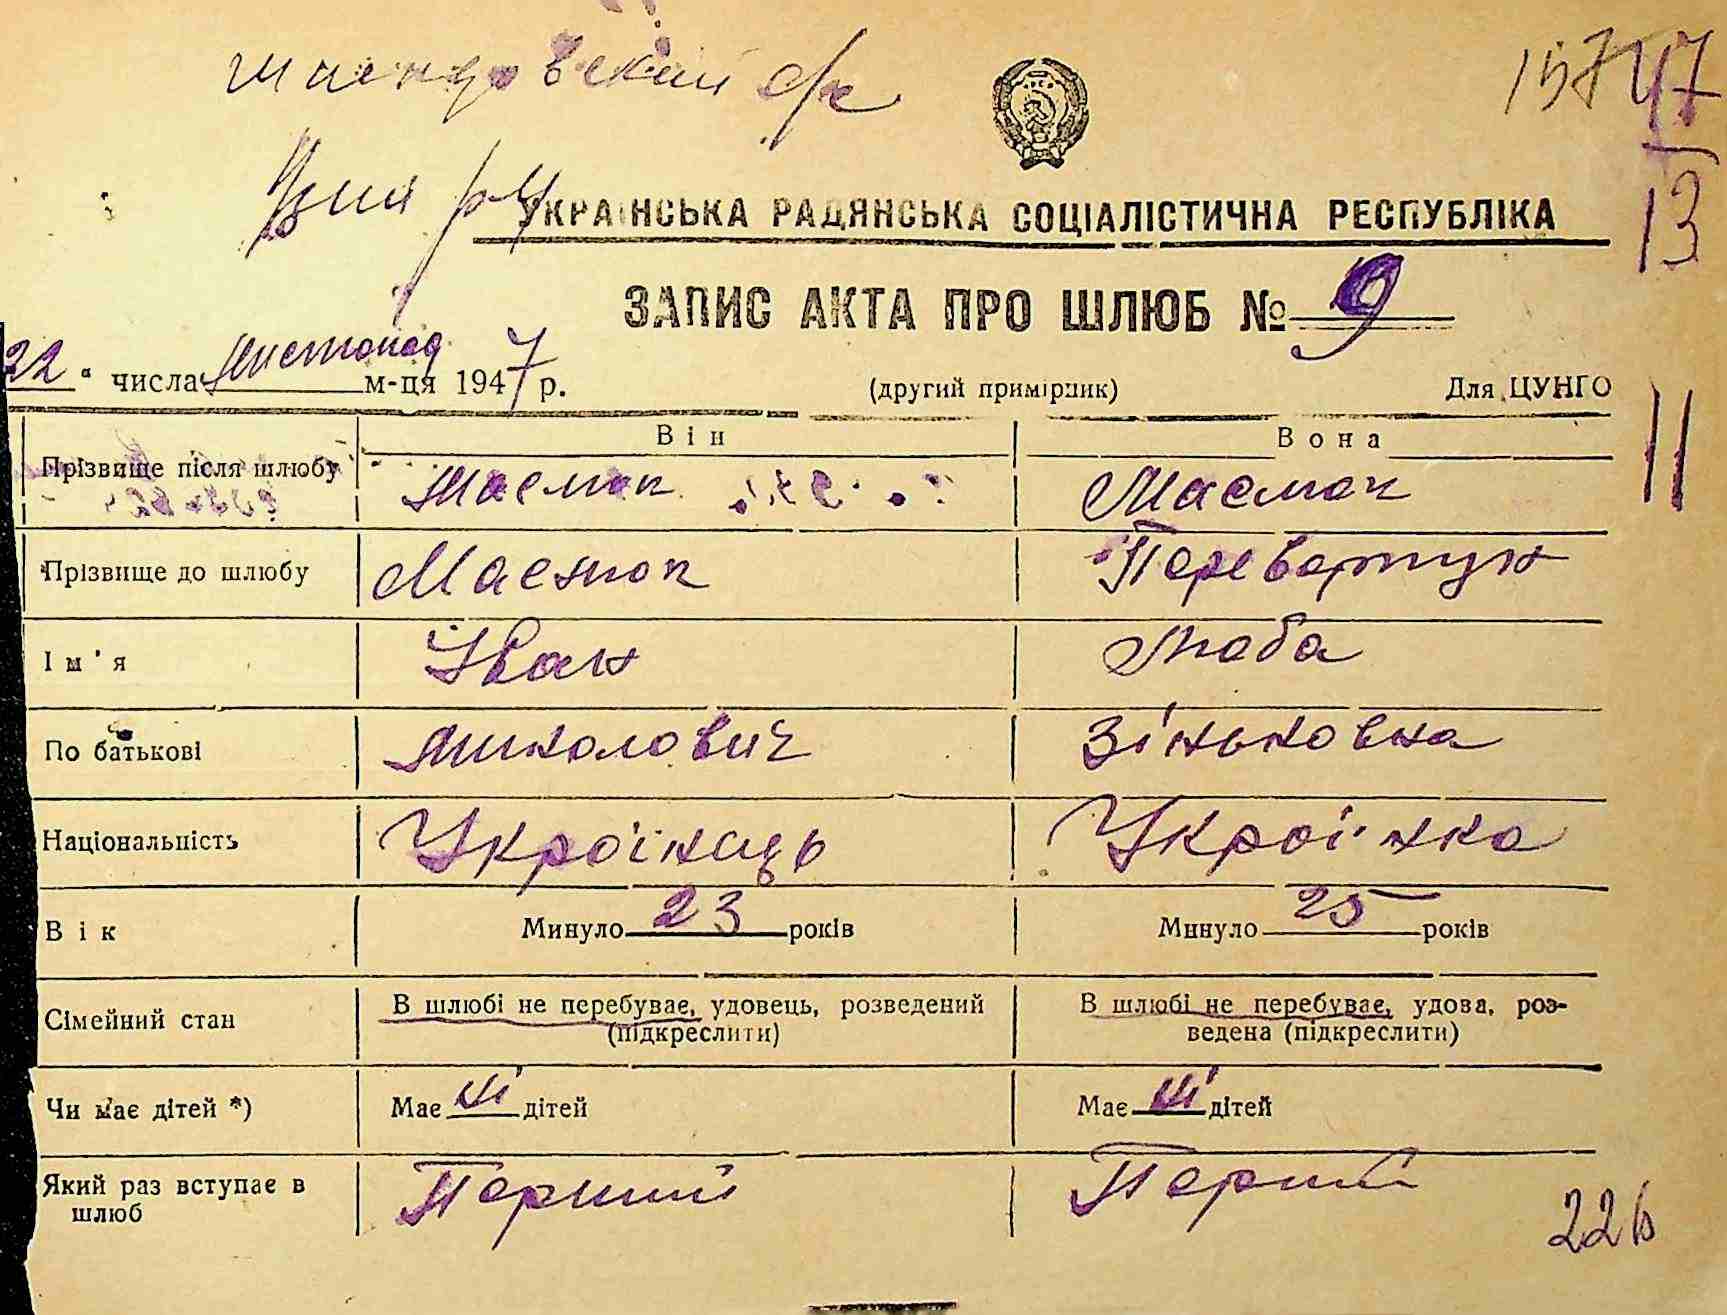 157 47
13
УКРАЇНСЬКА РАДЯНСЬКА СОЦІАЛІСТИЧНА РЕСПУБЛІКА
ЗАПИС АКТА ПРО ШЛЮБ № 9
22 " числа Листопад м-ця 1947 р. (другий примірник) Для ЦУНГО
11
Він Вона
Прізвище після шлюбу Маемон Маемон
Прізвище до шлюбу Маемон Перевертун
Ім'я Іван Люба
По батькові Миколович Зіньковна
Національність Українець Українка
Вік Минуло 23 років Минуло 25 років
Сімейний стан В шлюбі не перебуває, удовець, розведений (підкреслити) В шлюбі не перебуває, удова, роз-
ведена (підкреслити)
Чи має дітей *) Має ні дітей Має ні дітей
Який раз вступає в шлюб Перший Перший
226